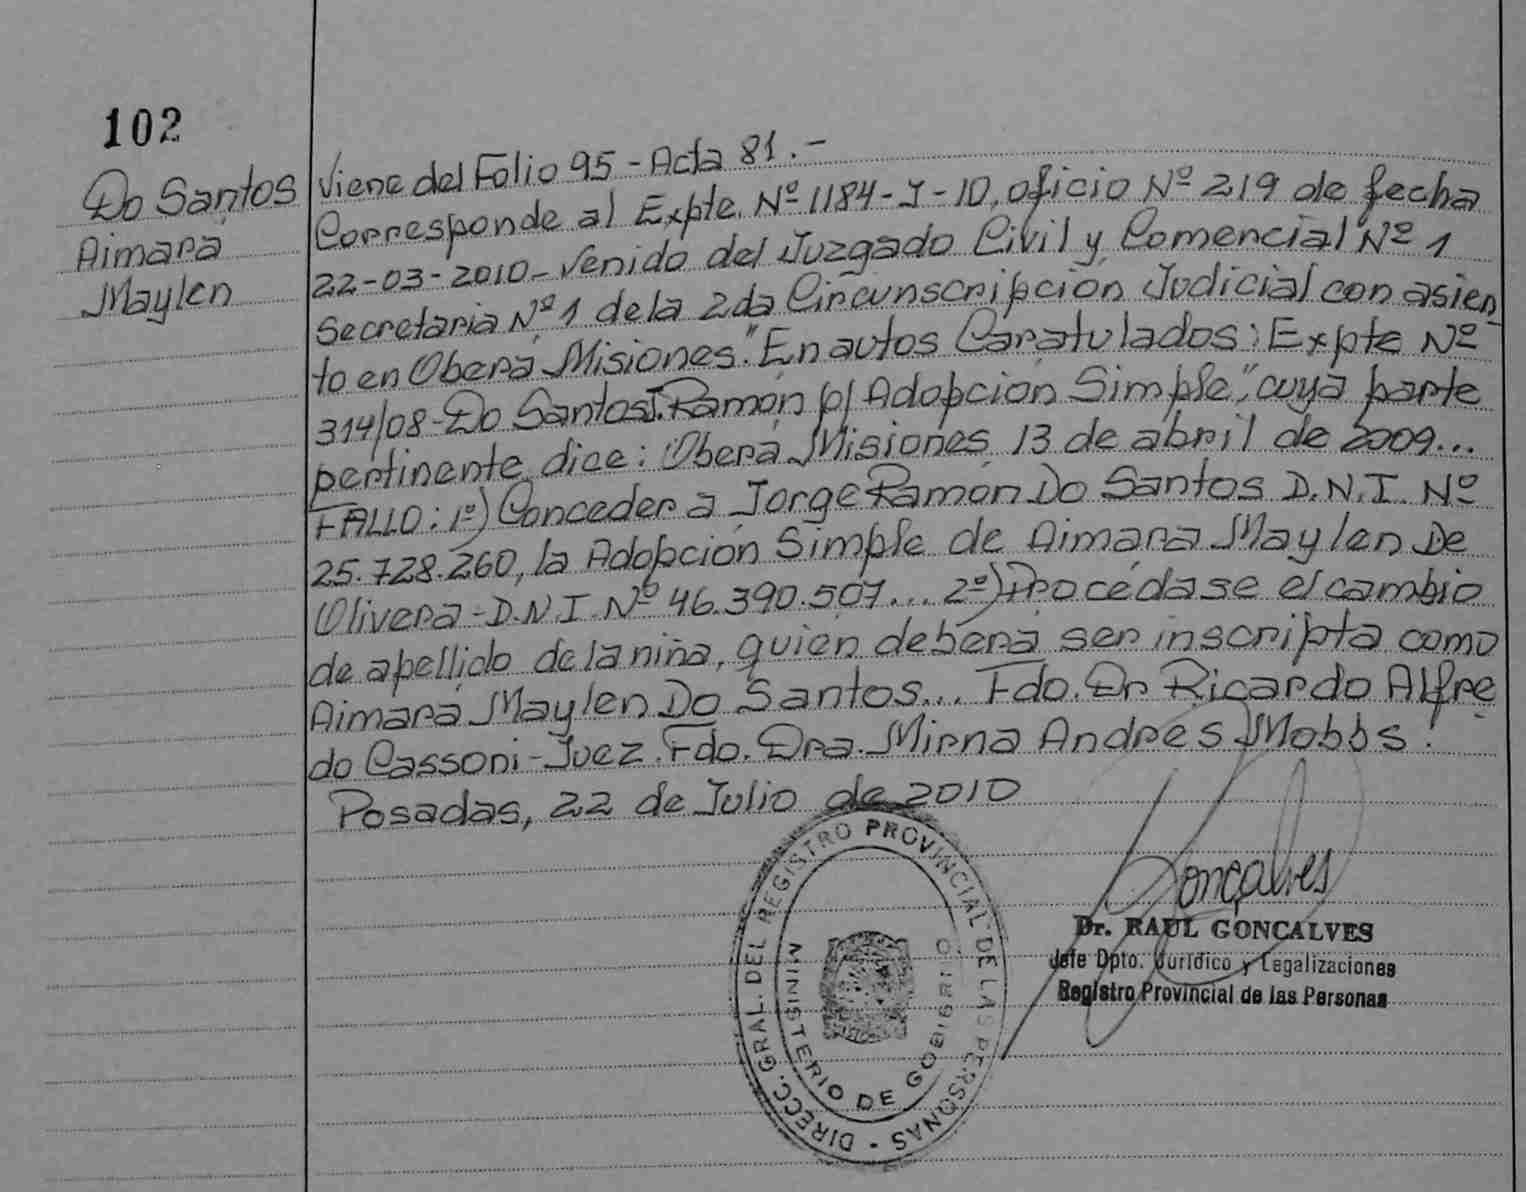 102
Do Santos
Aimara
Maylen
Viene del Folio 95 - Acta 81.-
Corresponde al Expte. Nº 1184-J-10, oficio Nº 219 de fecha
22-03-2010- Venido del Juzgado Civil y Comercial Nº 1
Secretaria Nº 1 de la 2da Circunscripción Judicial con asien
to en Oberá Misiones." En autos Caratulados: Expte Nº
314/08-Do Santos J. Ramón p/ Adopción Simple", cuya parte
pertinente dice: Oberá Misiones, 13 de abril de 2009...
FALLO: 1º) Conceder a Jorge Ramón Do Santos D.N.I. Nº
25.728.260, la Adopción Simple de Aimara Maylen De
Olivera - D.N.I. Nº 46.390.507... 2º) Procédase el cambio
de apellido de la niña, quién deberá ser inscripta como
Aimará Maylen Do Santos... Fdo. Dr Ricardo Alfre
do Cassoni - Juez. Fdo. Dra. Mirna Andres Mobbs.
Posadas, 22 de Julio de 2010
DIRECC. GRAL. DEL REGISTRO PROVINCIAL DE LAS PERSONAS -
MINISTERIO DE GOBIERNO
Gonçalves
Dr. RAUL GONCALVES
Jefe Dpto. Jurídico y Legalizaciones
Registro Provincial de las Personas